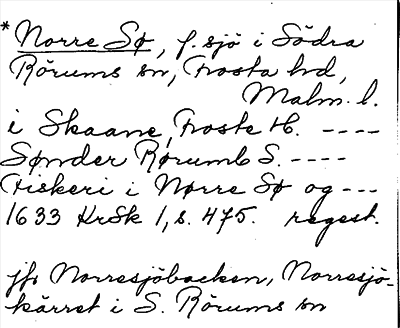 *Norre Sø, f. sjö i Södra
Rörums sn, Frosta hd,
Malm. l.
i Skaane, Froste H. ----
Sønder Rørumb S. ----
Fiskeri i Nørre Sø og ---
1633 KrSk 1, s. 475. regest.
jfr Norresjöbacken, Norresjö-
kärret i S. Rörums sn